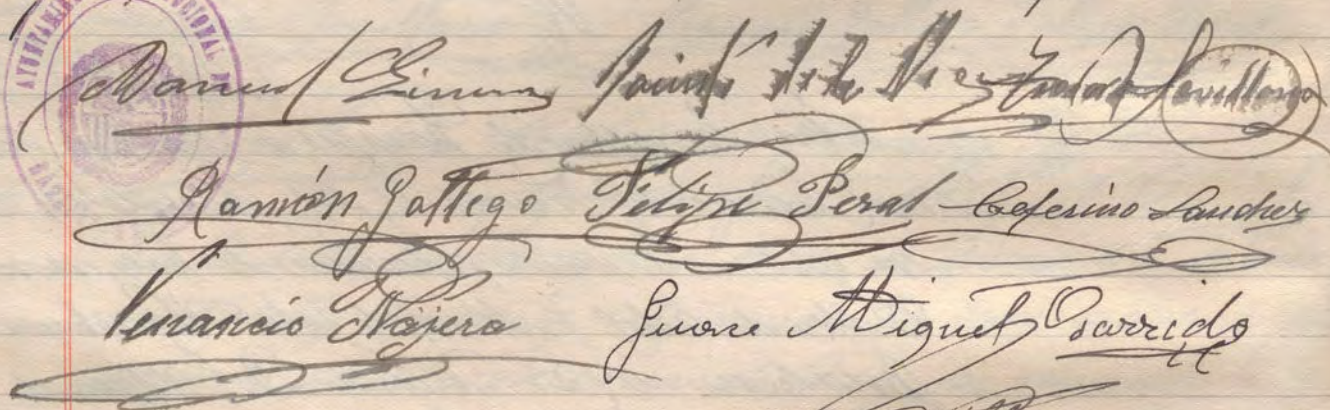 AYUNTAMIENTO CONSTITUCIONAL
Manuel Sevillano
Ramón Gallego Felipe Peral Ceferino Sanchez
Venancio Nájera Juane Miguel Garrido